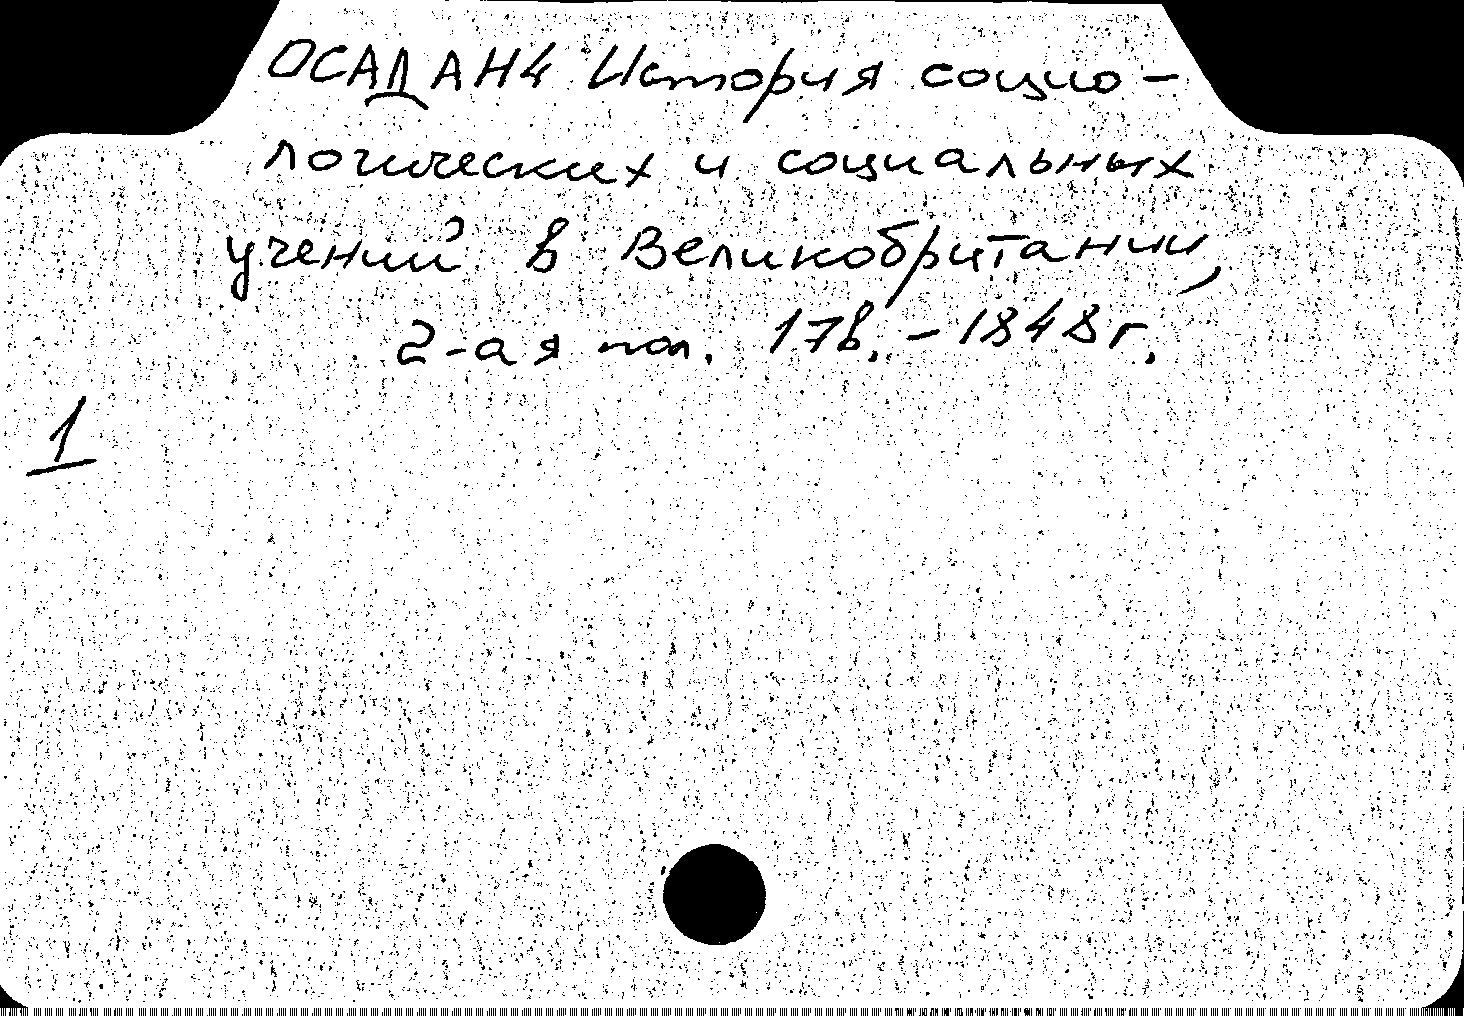 ОСАДАН4 История социо-
логических и социальных
учений в Великобритании,
2-ая пол. 17в. - 1848 г.
1